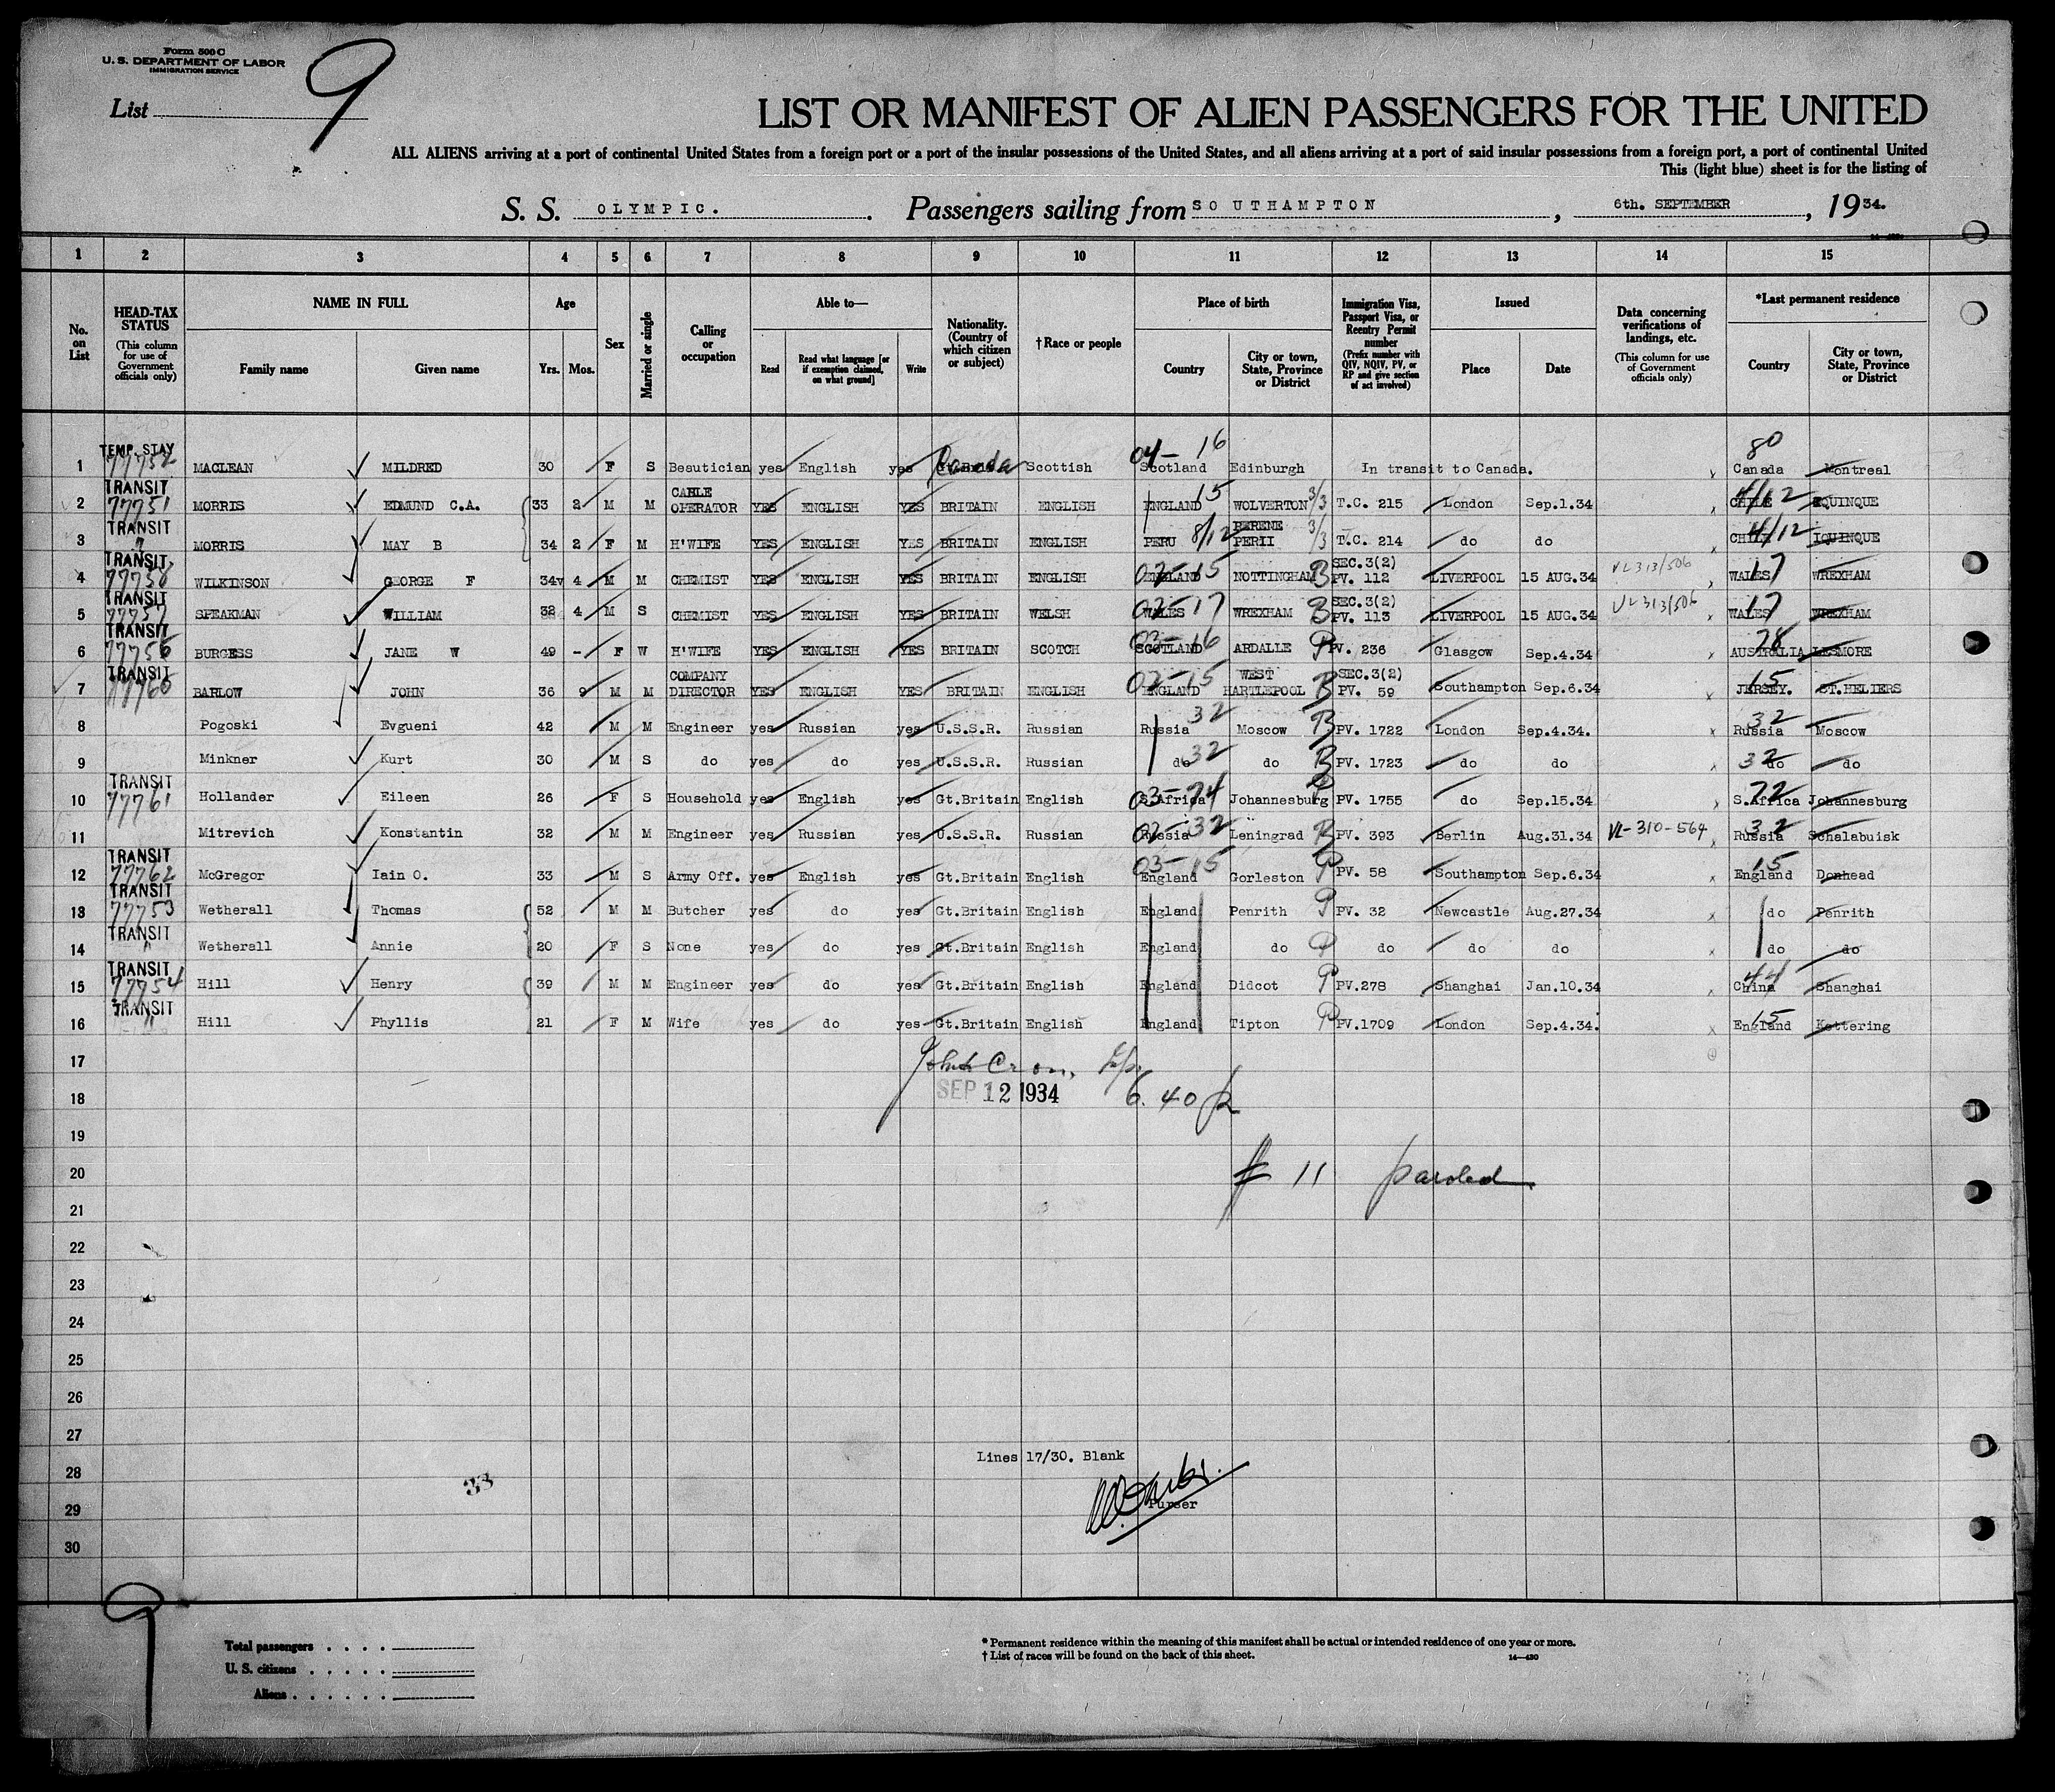 Form 500 C
U. S. DEPARTMENT OF LABOR
IMMIGRATION SERVICE
List 9
LIST OR MANIFEST OF ALIEN PASSENGERS FOR THE UNITED
ALL ALIENS arriving at a port of continental United States from a foreign port or a port of the insular possessions of the United States, and all aliens arriving at a port of said insular possessions from a foreign port, a port of continental United
This (light blue) sheet is for the listing of
S. S. OLYMPIC. Passengers sailing from SOUTHAMPTON, 6th. SEPTEMBER, 1934.
1 2 3 4 5 6 7 8 9 10 11 12 13 14 15
No. on List
HEAD-TAX STATUS
(This column for use of Government officials only)
NAME IN FULL
Family name Given name
Age
Yrs. Mos.
Sex
Married or single
Calling or occupation
Able to—
Read
Read what language [or if exemption claimed, on what ground]
Write
Nationality. (Country of which citizen or subject)
†Race or people
Place of birth
Country
City or town, State, Province or District
Immigration Visa, Passport Visa, or Reentry Permit number
(Prefix number with QIV, NQIV, PV, or RP and give section of act involved)
Issued
Place Date
Data concerning verifications of landings, etc.
(This column for use of Government officials only)
*Last permanent residence
Country
City or town, State, Province or District
1 TEMP. STAY 77752 MACLEAN MILDRED 30 F S Beautician yes English yes Canada Scottish 04-16 Scotland Edinburgh In transit to Canada. x 80 Canada Montreal
2 TRANSIT 77751 MORRIS EDMUND C.A. 33 2 M M CABLE OPERATOR YES ENGLISH YES BRITAIN ENGLISH ENGLAND 15 WOLVERTON 3/3 T.C. 215 London Sep.1.34 CHILE 4/12 IQUINQUE
3 TRANSIT " MORRIS MAY B 34 2 F M H'WIFE YES ENGLISH YES BRITAIN ENGLISH PERU 8/12 PERENE PERII 3/3 T.C. 214 do do x CHILE 4/12 IQUINQUE
4 TRANSIT 77758 WILKINSON GEORGE F 34 4 M M CHEMIST YES ENGLISH YES BRITAIN ENGLISH 02-15 ENGLAND NOTTINGHAM B SEC.3(2) PV. 112 LIVERPOOL 15 AUG.34 VL313/506 WALES 17 WREXHAM
5 TRANSIT 77757 SPEAKMAN WILLIAM 32 4 M S CHEMIST YES ENGLISH YES BRITAIN WELSH 02-17 WALES WREXHAM B SEC.3(2) PV. 113 LIVERPOOL 15 AUG.34 VL313/506 x WALES 17 WREXHAM
6 TRANSIT 77756 BURGESS JANE W 49 - F W H'WIFE YES ENGLISH YES BRITAIN SCOTCH 03-16 SCOTLAND ARDALLE PV. 236 Glasgow Sep.4.34 x AUSTRALIA 78 LESMORE
7 TRANSIT 77760 BARLOW JOHN 36 9 M M COMPANY DIRECTOR YES ENGLISH YES BRITAIN ENGLISH 02-15 ENGLAND WEST HARTLEPOOL B SEC.3(2) PV. 59 Southampton Sep.6.34 x 15 JERSEY. ST.HELIERS
8 Pogoski Evgueni 42 M M Engineer yes Russian yes U.S.S.R. Russian 32 Russia Moscow B PV. 1722 London Sep.4.34. x 32 Russia Moscow
9 Minkner Kurt 30 M S do yes do yes U.S.S.R. Russian do 32 do B PV. 1723 do do 32 do do
10 TRANSIT 77761 Hollander Eileen 26 F S Household yes English yes Gt.Britain English 03-74 S.Africa Johannesburg P PV. 1755 do Sep.15.34 72 S.Africa Johannesburg
11 Mitrevich Konstantin 32 M M Engineer yes Russian yes U.S.S.R. Russian 02-32 Russia Leningrad B PV. 393 Berlin Aug.31.34 VL-310-564 32 Russia Schalabuisk
12 TRANSIT 77762 McGregor Iain O. 33 M S Army Off. yes English yes Gt.Britain English 03-15 England Gorleston P PV. 58 Southampton Sep.6.34 x 15 England Donhead
13 TRANSIT 77753 Wetherall Thomas 52 M M Butcher yes do yes Gt.Britain English England Penrith P PV. 32 Newcastle Aug.27.34 x do Penrith
14 TRANSIT " Wetherall Annie 20 F S None yes do yes Gt.Britain English England do P do do do x do do
15 TRANSIT 77754 Hill Henry 39 M M Engineer yes do yes Gt.Britain English England Didcot P PV.278 Shanghai Jan.10.34 44 China Shanghai
16 TRANSIT " Hill Phyllis 21 F M Wife yes do yes Gt.Britain English England Tipton P PV.1709 London Sep.4.34. x 15 England Kettering
17 John Cron, Ip.
18 SEP 12 1934 6.40 p
19
20 # 11 paroled
21
22
23
24
25
26
27 Lines 17/30. Blank
28 33
29 Purser
30
9
Total passengers
U. S. citizens
Aliens
* Permanent residence within the meaning of this manifest shall be actual or intended residence of one year or more.
† List of races will be found on the back of this sheet.
14—430